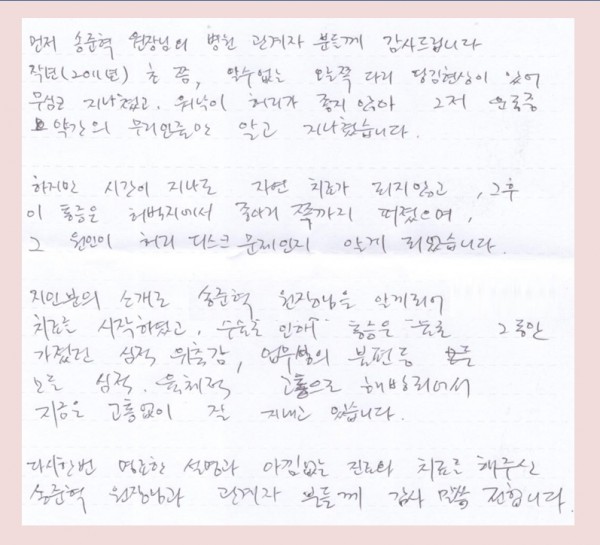 먼저 송준혁 원장님외 병원 관계자 분들께 감사드립니다
작년(2011년) 초 쯤, 알수없는 오른쪽 다리 당김현상이 있어
무심코 지나쳤고, 워낙이 허리가 좋지 않아 그저 운동중
약간의 무리인줄만 알고 지나쳤습니다.
하지만 시간이 지나도 자연 치료가 되지않고, 그후
이 통증은 허벅지에서 종아리 쪽까지 퍼졌으며,
그 원인이 허리 디스크 문제인지 알게 되었습니다.
지인분의 소개로 송준혁 원장님을 알게되어
치료를 시작하였고, 수술로 인해 통증은 물론 그동안
가졌던 심적 위축감, 업무상의 불편등
모든 심적. 육체적 고통으로 해방되어서
지금은 고통없이 잘 지내고 있습니다.
다시한번 명료한 설명과 아낌없는 진료와 치료를 해주신
송준혁 원장님과 관계자 분들께 감사 말씀 전합니다.